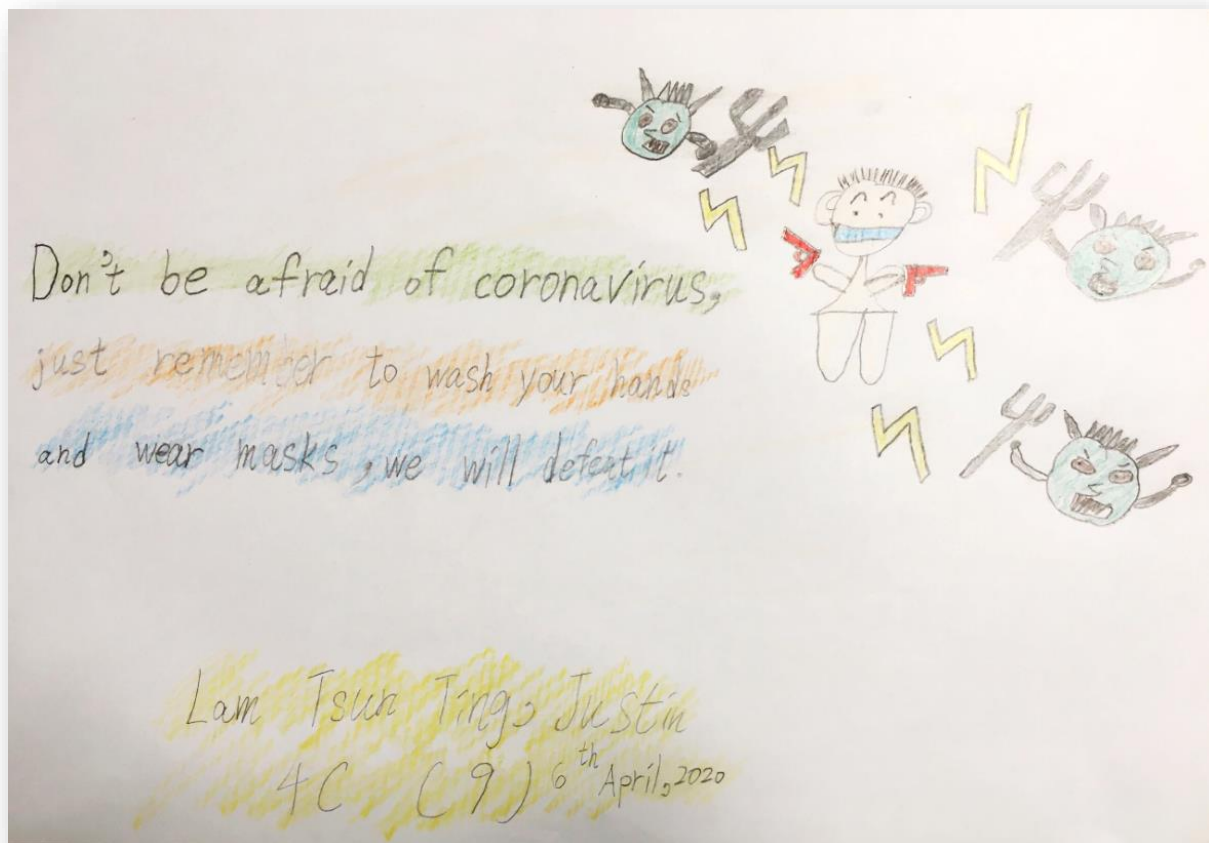 Don't be afraid of coronavirus,
just remember to wash your hands
and wear masks, we will defeat it.
Lam Tsun Ting, Justin
4C (9) 6th April, 2020